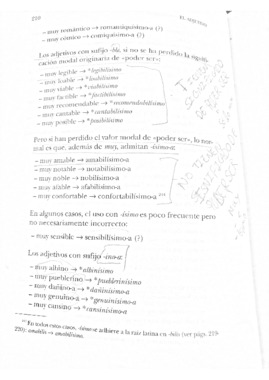 250
EL ADJETIVO
– muy romántico → romantiquísimo-a (?)
– muy cómico → comiquísimo-a (?)
Los adjetivos con sufijo -ble, si no se ha perdido la signifi-
cación modal originaria de «poder ser»:
– muy legible → *legibilísimo
– muy loable → *loabilísimo
– muy viable → *viabilísimo
– muy factible → *factibilísimo
– muy recomendable → *recomendabilísimo
– muy cantable → *cantabilísimo
– muy posible → *posibilísimo
Pero si han perdido el valor modal de «poder ser», lo nor-
mal es que, además de muy, admitan -ísimo-a:
– muy amable → amabilísimo-a
– muy notable → notabilísimo-a
– muy noble → nobilísimo-a
– muy afable → afabilísimo-a
– muy confortable → confortabilísimo-a
En algunos casos, el uso con -ísimo es poco frecuente pero
no necesariamente incorrecto:
– muy sensible → sensibilísimo-a (?)
Los adjetivos con sufijo -ino-a:
– muy albino → *albinísimo
– muy pueblerino → *pueblerinísimo
– muy dañino → *dañinísimo-a
– muy genuino-a → *genuinísimo-a
– muy cansino → *cansinísimo-a
En todos estos casos, -ísimo se adhiere a la raíz latina en -bilis (ver págs. 219-
220): amabilis → amabilísimo.